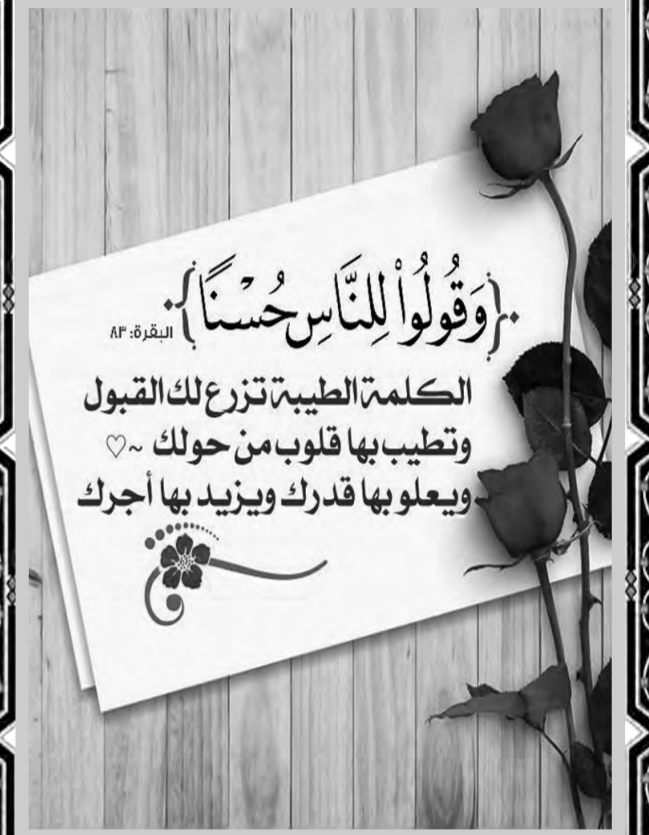 ﴿وَقُولُواْ لِلنَّاسِ حُسْنًا﴾ البقرة: ٨٣
الكلمة الطيبة تزرع لك القبول
وتطيب بها قلوب من حولك ~♡
ويعلو بها قدرك ويزيد بها أجرك